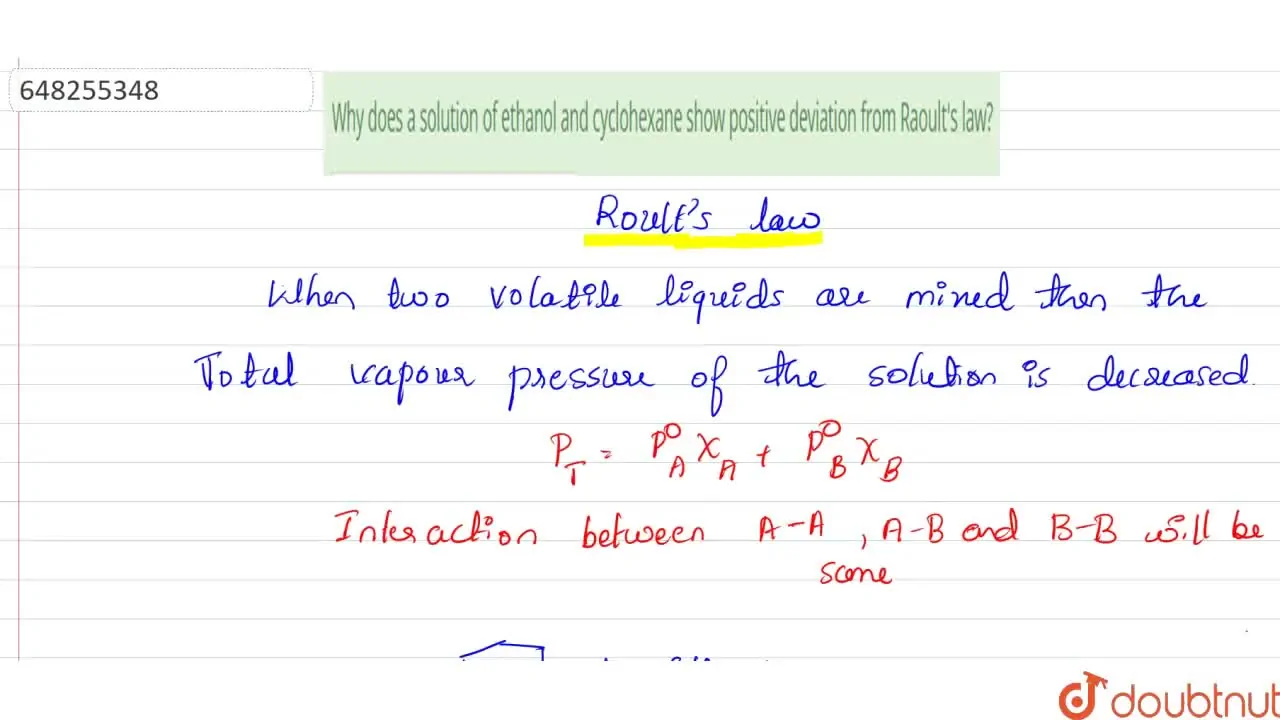 648255348
Why does a solution of ethanol and cyclohexane show positive deviation from Raoult's law?
Roult's law
When two volatile liquids are mixed then the
Total vapour pressure of the solution is decreased.
P_T = P⁰_A X_A + P⁰_B X_B
Interaction between A-A, A-B and B-B will be
same
doubtnut